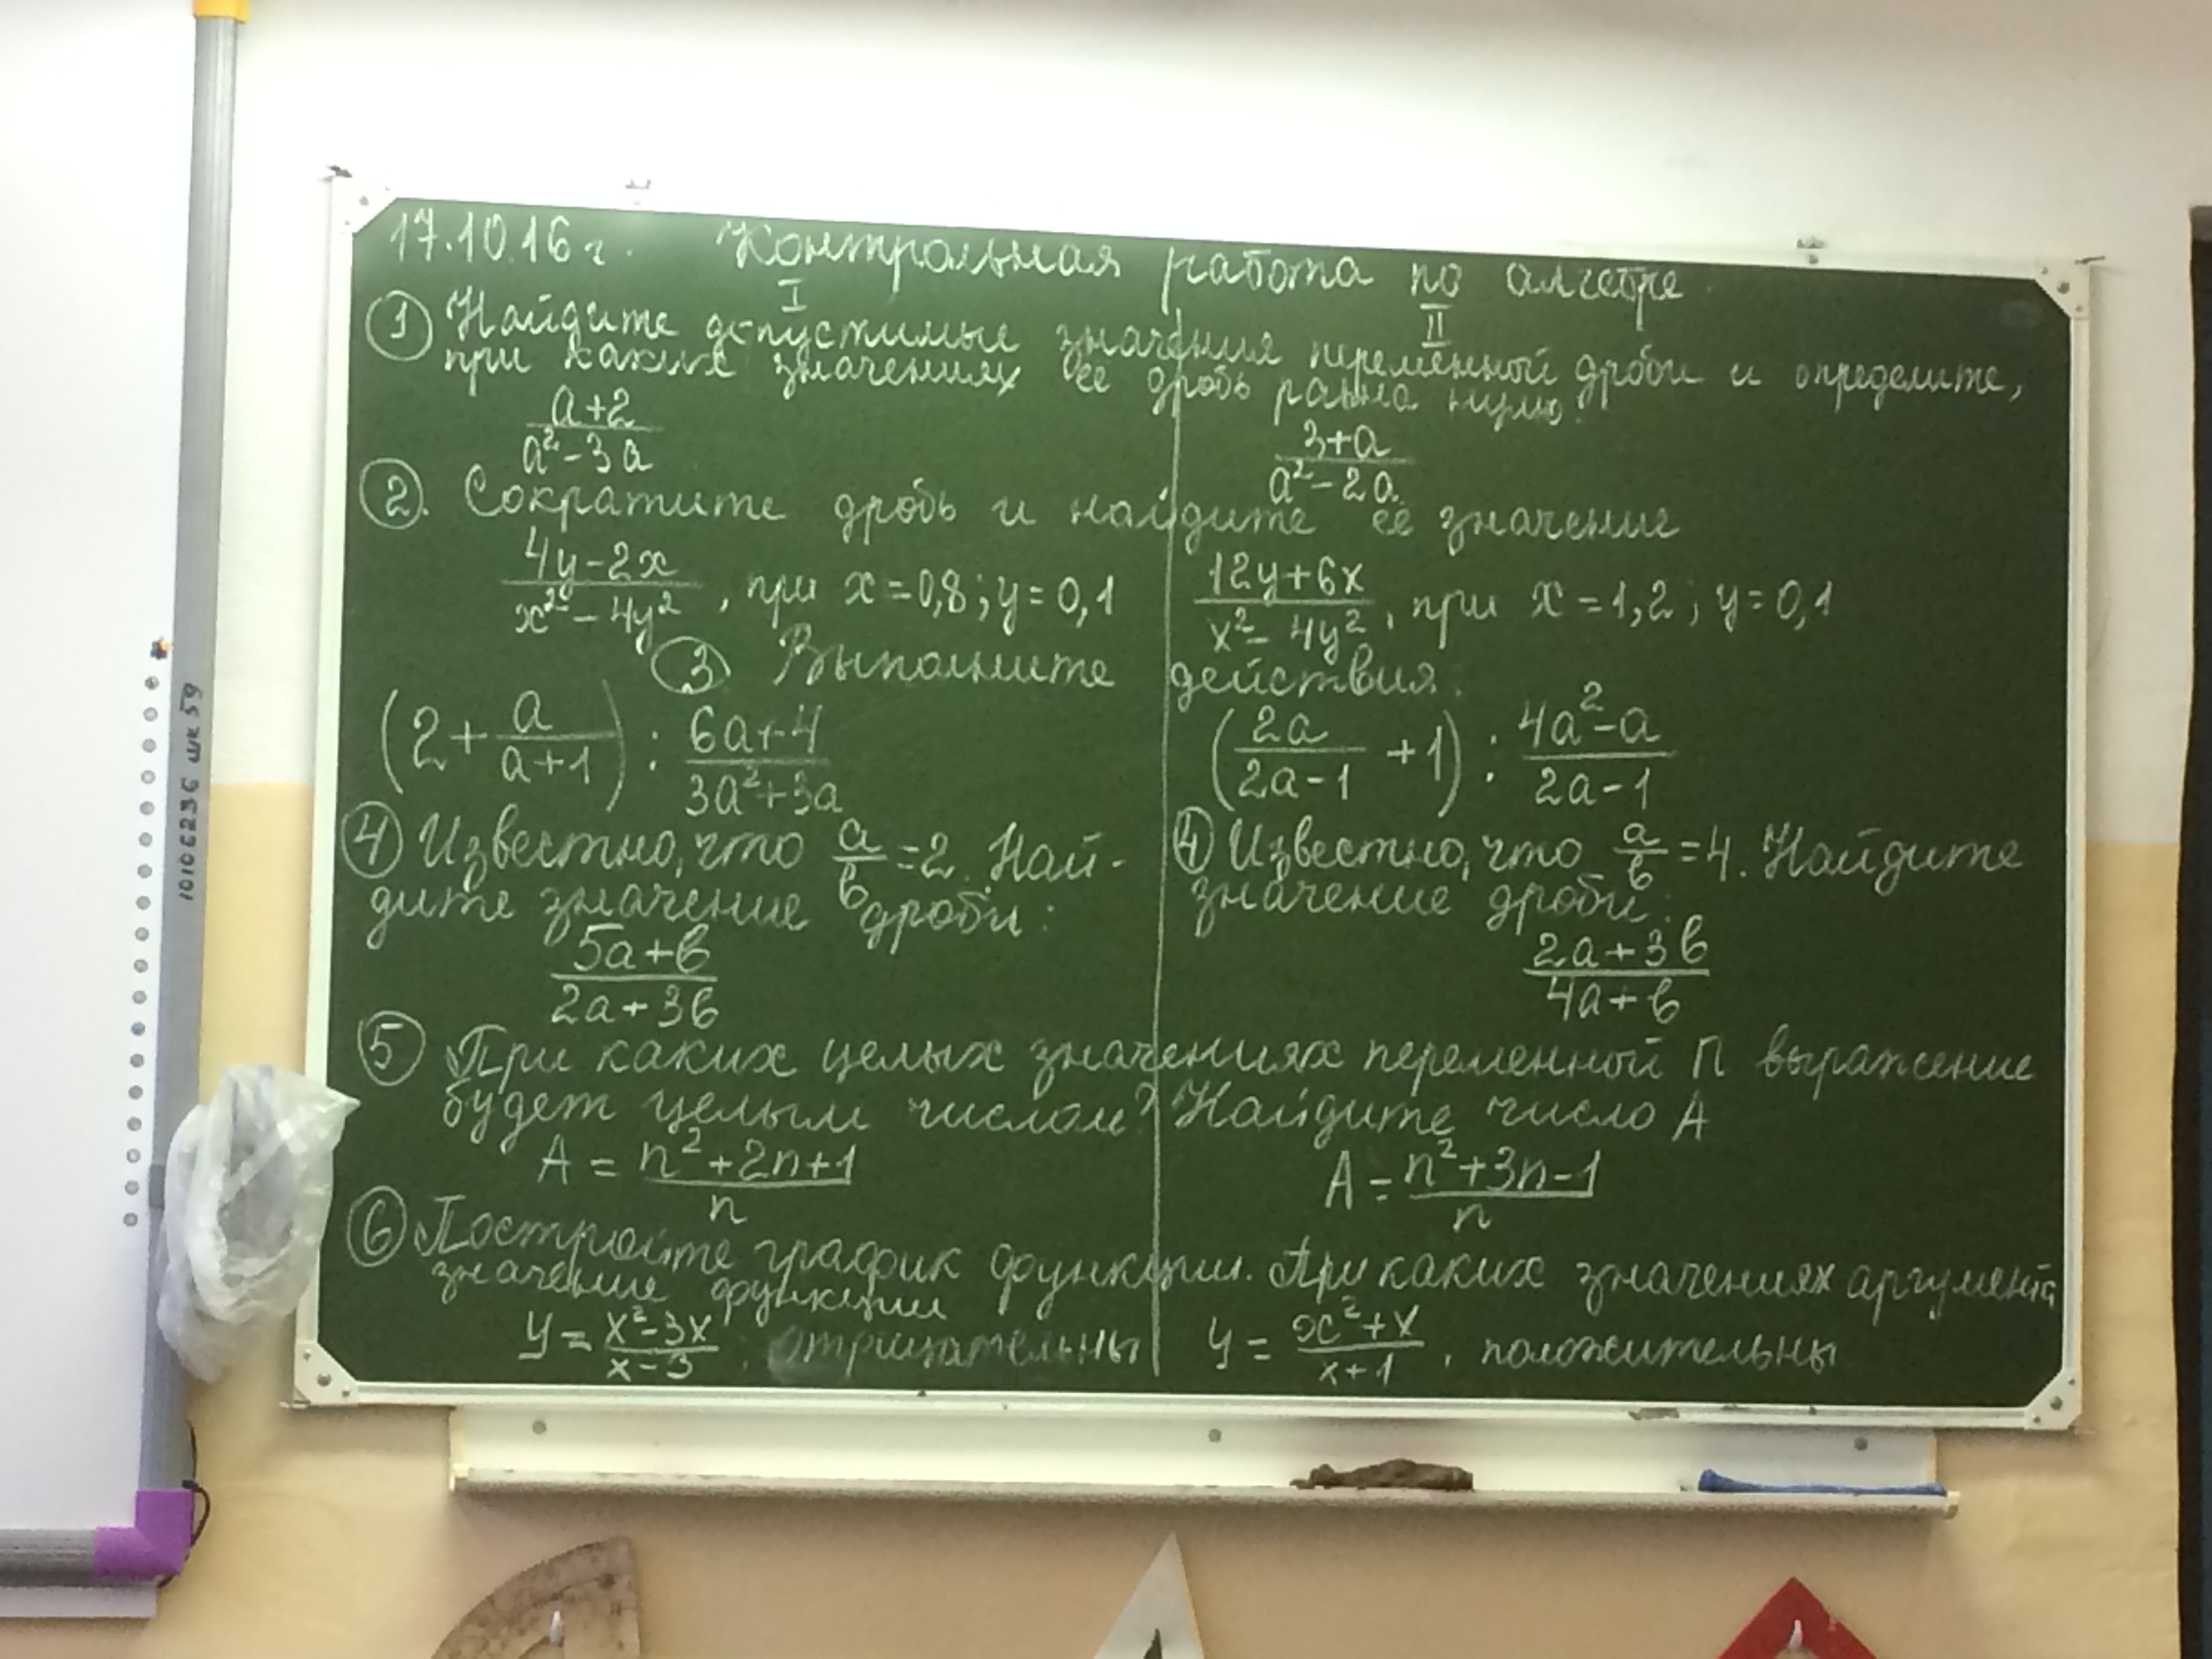 17.10.16 г. Контрольная работа по алгебре
I II
① Найдите допустимые значения переменной дроби и определите,
при каких значениях её дробь равна нулю.
a+2 / a²-3a
3+a / a²-2a
②. Сократите дробь и найдите её значение
4y-2x / x²-4y², при x=0,8; y=0,1
12y+6x / x²-4y², при x=1,2; y=0,1
③ Выполните действия.
(2 + a/(a+1)) : (6a+4)/(3a²+3a)
(2a/(2a-1) + 1) : (4a²-a)/(2a-1)
④ Известно, что a/в = 2. Най-
дите значение дроби:
5a+в / 2a+3в
④ Известно, что a/в = 4. Найдите
значение дроби:
2a+3в / 4a+в
⑤ При каких целых значениях переменной n выражение
будет целым числом? Найдите число A
A = n²+2n+1 / n
A = n²+3n-1 / n
⑥ Постройте график функции. При каких значениях аргумента
значение функции
y = x²-3x / x-3, отрицательны
y = x²+x / x+1, положительны
10106236 шк 59